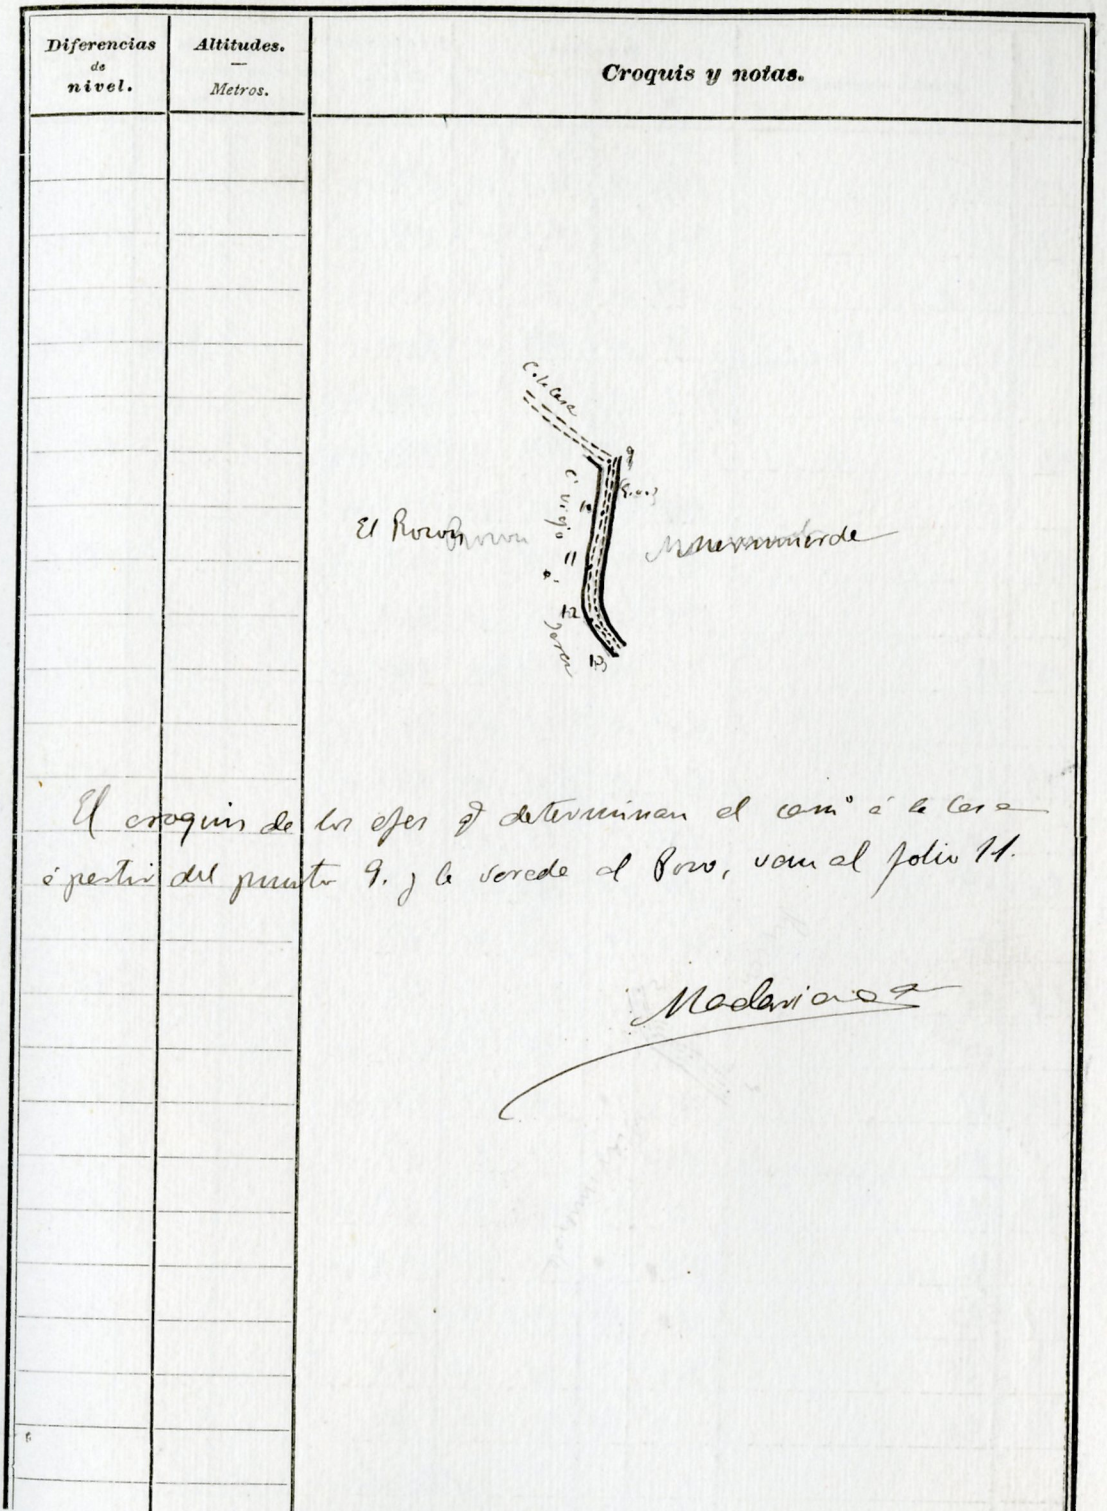 Diferencias
de
nivel.
Altitudes.
Metros.
Croquis y notas.
C. de la Casa
9
10
Cº Viejo
El Rozon
11
á
12
Jerez
13
El croquis de los ejes q̃ determinan el camº á la Casa
á partir del punto 9. y la vereda al Pozo, van al folio 11.
Madariaga